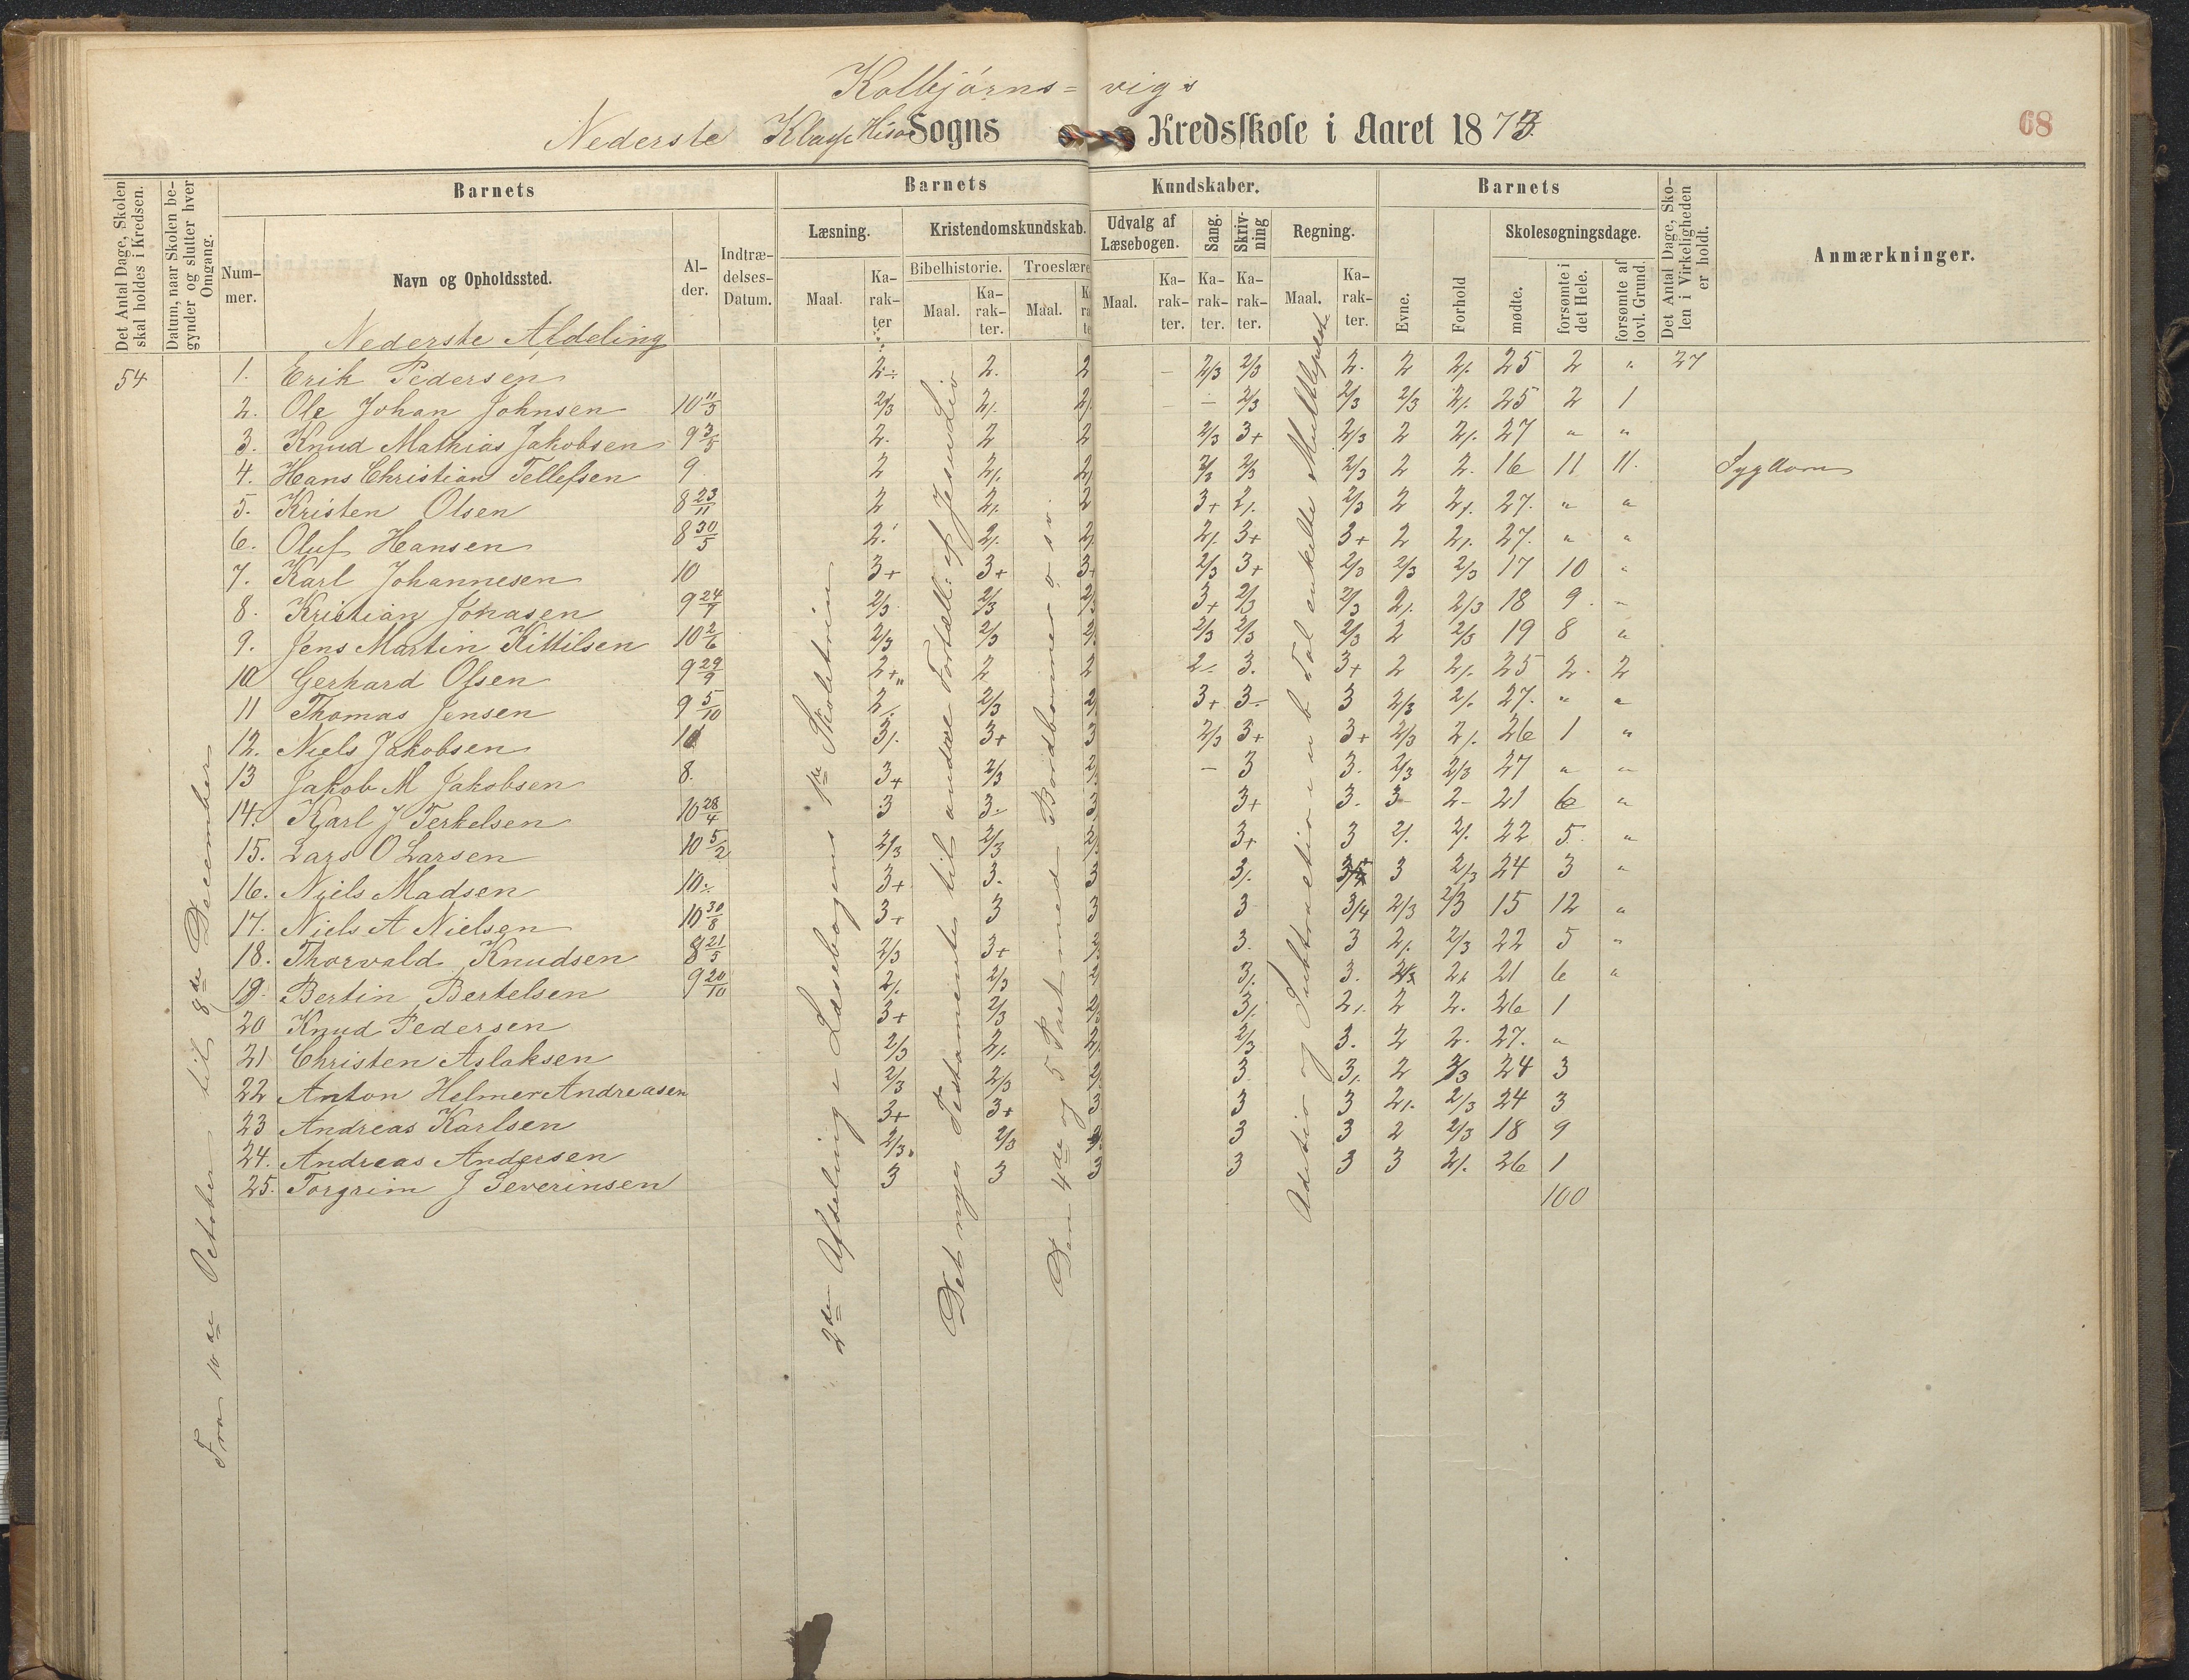 Kolbjörns= vigs
Nederste Klasse Hisø Sogns Kredsskole i Aaret 1873.
68
Det Antal Dage, Skolen skal holdes i Kredsen.
Datum, naar Skolen begynder og slutter hver Omgang.
Barnets
Barnets Kundskaber.
Barnets
Nummer.
Navn og Opholdssted.
Alder.
Indtrædelses-Datum.
Læsning.
Kristendomskundskab.
Bibelhistorie.
Troeslære
Udvalg af Læsebogen.
Sang.
Skrivning
Regning.
Maal. Karakter
Maal. Karakter.
Maal.
Maal. Karakter.
Karakter.
Karakter.
Maal. Karakter.
Evne.
Forhold
Skolesøgningsdage.
mødte.
forsømte i det Hele.
forsømte af lovl. Grund.
Det Antal Dage, Skolen i Virkeligheden er holdt.
Anmærkninger.
Nederste Afdeling
54 1. Erik Pedersen 2÷ 2. 2 – 2/3 2/3 2. 2 2/. 25 2 " 27
2. Ole Johan Johnsen 10 11/3 2/3 2/. 2/. – – 2/3 2/3 2/3 2/. 25 2 1
3. Knud Mathias Jakobsen 9 3/5 2. 2 2 2/3 3+ 2/3 2 2/. 27 " "
4. Hans Christian Tellefsen 9 2 2/. 2/. 2/3 2/3 2/3 2 2. 16 11 11. Sygdom
5. Kristen Olsen 8 23/11 2 2/. 2 3+ 2/. 2/3 2 2/. 27. " "
6. Oluf Hansen 8 30/5 2. 2/. 2/. 2/. 3+ 3+ 2 2/. 27. " "
7. Karl Johannesen 10 3+ 3+ 3+ 2/3 3+ 2/3 2/3 2/3 17 10 "
8. Kristian Jonasen 9 24/7 2/3 2/3 2/3 3+ 2/3 2/3 2/. 2/3 18 9. "
9. Jens Martin Kittilsen 10 2/6 2/3 2/3 2/3 2/3 2/3 2/3 2 2/3 19 8 "
10 Gerhard Olsen 9 29/9 2+ 2 2 2/. 3. 3+ 2 2/. 25 2. 2
11 Thomas Jensen 9 5/10 2/. 2/3 2/ 3+ 3÷ 3 2/3 2/. 27. " "
12. Niels Jakobsen 3/. 3+ 3 2/3 3+ 3+ 2/3 2/. 26 1 "
13 Jakob M Jakobsen 8. 3+ 2/3 2/ – 3 3. 2/3 2/3 27 " "
14. Karl J Terkelsen 10 28/4 3 3÷ 3 3+ 3. 3 2÷ 21 6 "
15. Lars O Larsen 10 5/2 2/3 2/3 2/ 3+ 3 2/. 2/. 22 5. "
16. Niels Madsen 10÷ 3+ 3. 3 3/. 3 2/3 24 3 "
17. Niels A Nielsen 10 30/8 3+ 3 3 3 3/4 2/3 2/3 15 12 "
18. Thorvald Knudsen 8 21/5 2/3 3+ 2/ 3. 3 2/. 2/3 22 5 "
19. Bertin Bertelsen 9 20/10 2/. 2/3 2/ 3/. 3. 2/3 2/. 21 6 "
20 Knud Pedersen 3+ 2/3 2/ 3/. 2/. 2 2. 26 1
21 Christen Aslaksen 2/3 2/. 2/. 2/3 3. 2 2. 27. "
22 Anton Helmer Andreasen 2/3 2/3 2/ 3 3/. 2 2/3 24 3
23 Andreas Karlsen 3+ 3+ 3 3 3 2/. 2/3 24 3
24. Andreas Andersen 2/3. 2/3 3 3 2 2/3 18 9
25. Torgrim J Severinsen 3 3 3 3 3 3 2/. 26 1
100
Fra 10de October til 8de December
2den Afdeling i Læsebogens 1ste Skoletrin
Det nye Testamente til andre Fortæll: af Jesu Liv
Den 4de og 5 Part med Bordbønner o. s. v.
Adetio og Subtraction i ub Tal enkelte Multlipkt